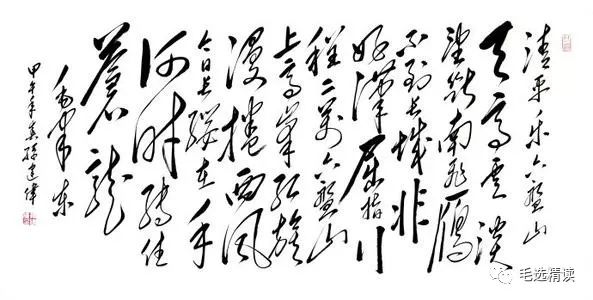 清平乐六盘山
天高雲淡
望断南飞雁
不到长城非
好漢屈指行
程二萬六盘山
上高峯红旗
漫捲西风
今日长缨在手
何时缚住
蒼龍
毛泽东
甲午年 孫建偉
毛选精读